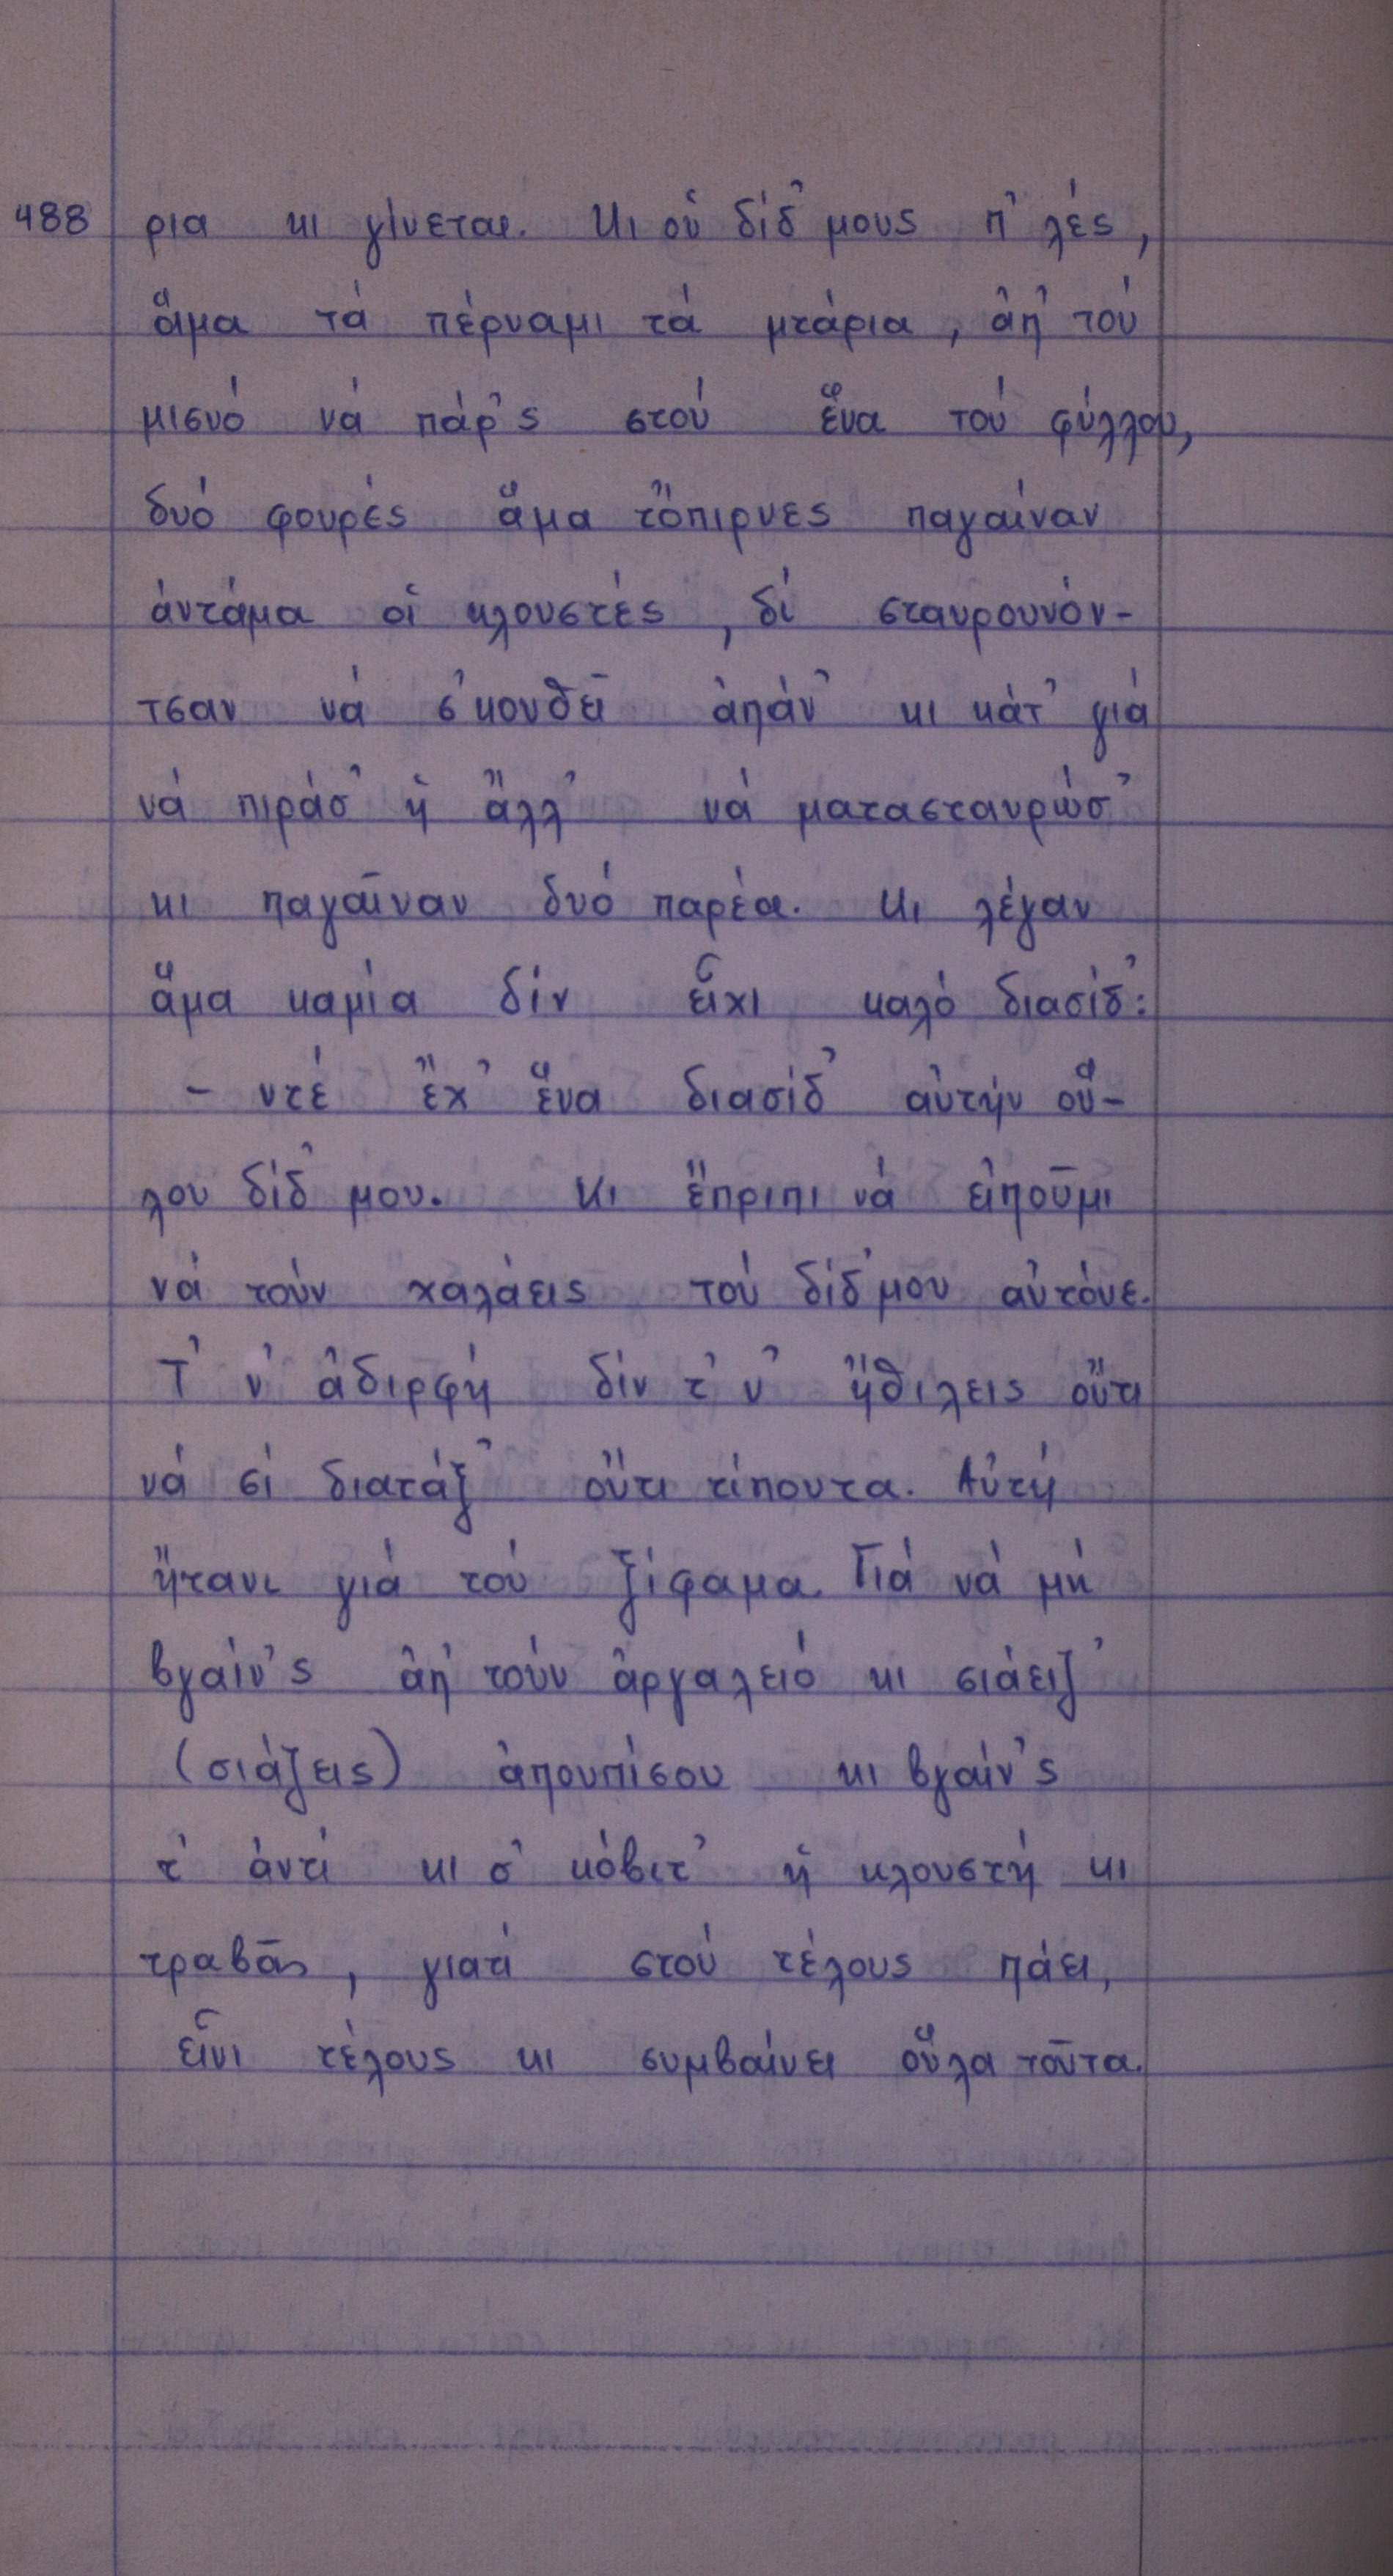 488 ρια κι γίνεται. Κι οὑ δίδ᾿ μους π᾿ λές,
ἅμα τά πέρναμι τά μτάρια, ἀπ᾿ τού
μισνό νά πάρ᾿ς στού ἕνα τού φύλλου,
δυό φουρές ἅμα τὄπιρνες παγαίναν
ἀντάμα οἱ κλουστές, δέ σταυρουνόν-
τσαν νά σ᾿κουθεῖ ἀπάν᾿ κι κάτ᾿ γιά
νά πιράσ᾿ ἡ ἄλλ᾿ νά ματασταυρώσ᾿
κι παγαῖναν δυό παρέα. Κι λέγαν
ἅμα καμία δέν εἶχι καλό διασίδ᾿:
- ντέ ἔχ᾿ ἕνα διασίδ᾿ αὐτήν οὕ-
λου δίδ᾿ μου. Κι ἔπριπι νά εἰποῦμι
νά τούν χαλάεις τού δίδ᾿μου αὐτόνε.
Τ᾿ ν᾿ ἀδιρφή δέν τ᾿ ν᾿ ἤθιλεις οὔτι
νά σί διατάξ᾿ οὔτι τίπουτα. Αὐτή
ἤτανι γιά τού ξίφαμα. Γιά νά μή
βγαίν᾿ς ἀπ᾿ τούν ἀργαλειό κι σιάειζ᾿
(σιάζεις) ἀπουπίσου κι βγαίν᾿ς
τ᾿ ἀντί κι σ᾿ κόβιτ᾿ ἡ κλουστή κι
τραβᾶς, γιατί στού τέλους πάει,
εἶνι τέλους κι συμβαίνει οὕλα τοῦτα.